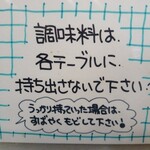 調味料は、
各テーブルに、
持ち出さないで下さい
うっかり持っていった場合は、
すばやくもどして下さい。